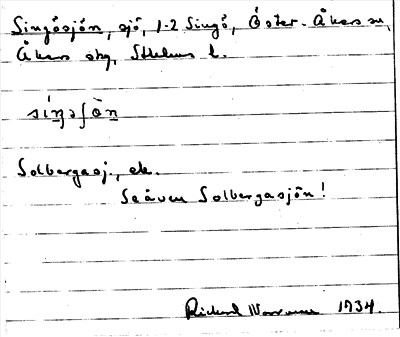 Singösjön, sjö, 1-2 Singö, Öster-Åkers sn,
Åkers skg, Sthlms l.
síŋəʃὼn
Solbergasj., ek.
Se även Solbergasjön!
Rickard 1934.